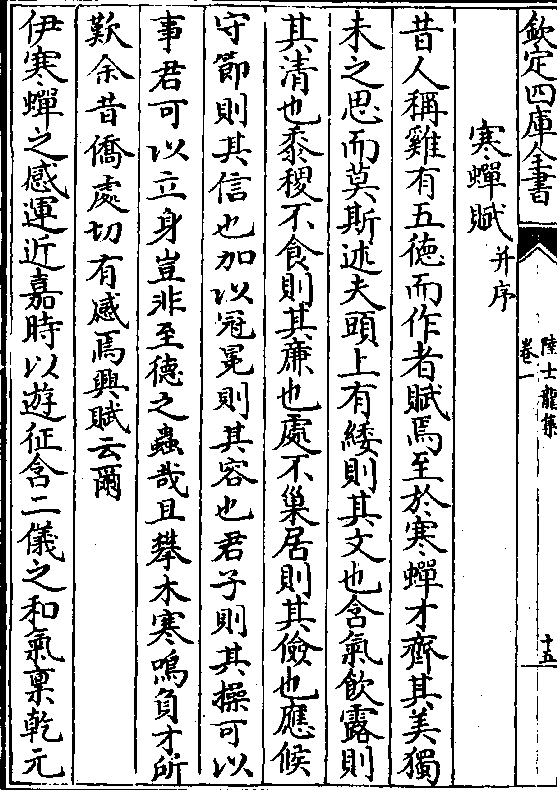 欽定四庫全書
陸士龍集
卷一
十五
寒蟬賦并序
昔人稱雞有五德而作者賦焉至於寒蟬才齊其美獨
未之思而莫斯述夫頭上有緌則其文也含氣飲露則
其清也黍稷不食則其廉也處不巢居則其儉也應候
守節則其信也加以冠冕則其容也君子則其操可以
事君可以立身豈非至德之蟲哉且攀木寒鳴負才所
歎余昔僑處切有感焉興賦云爾
伊寒蟬之感運近嘉時以遊征含二儀之和氣稟乾元